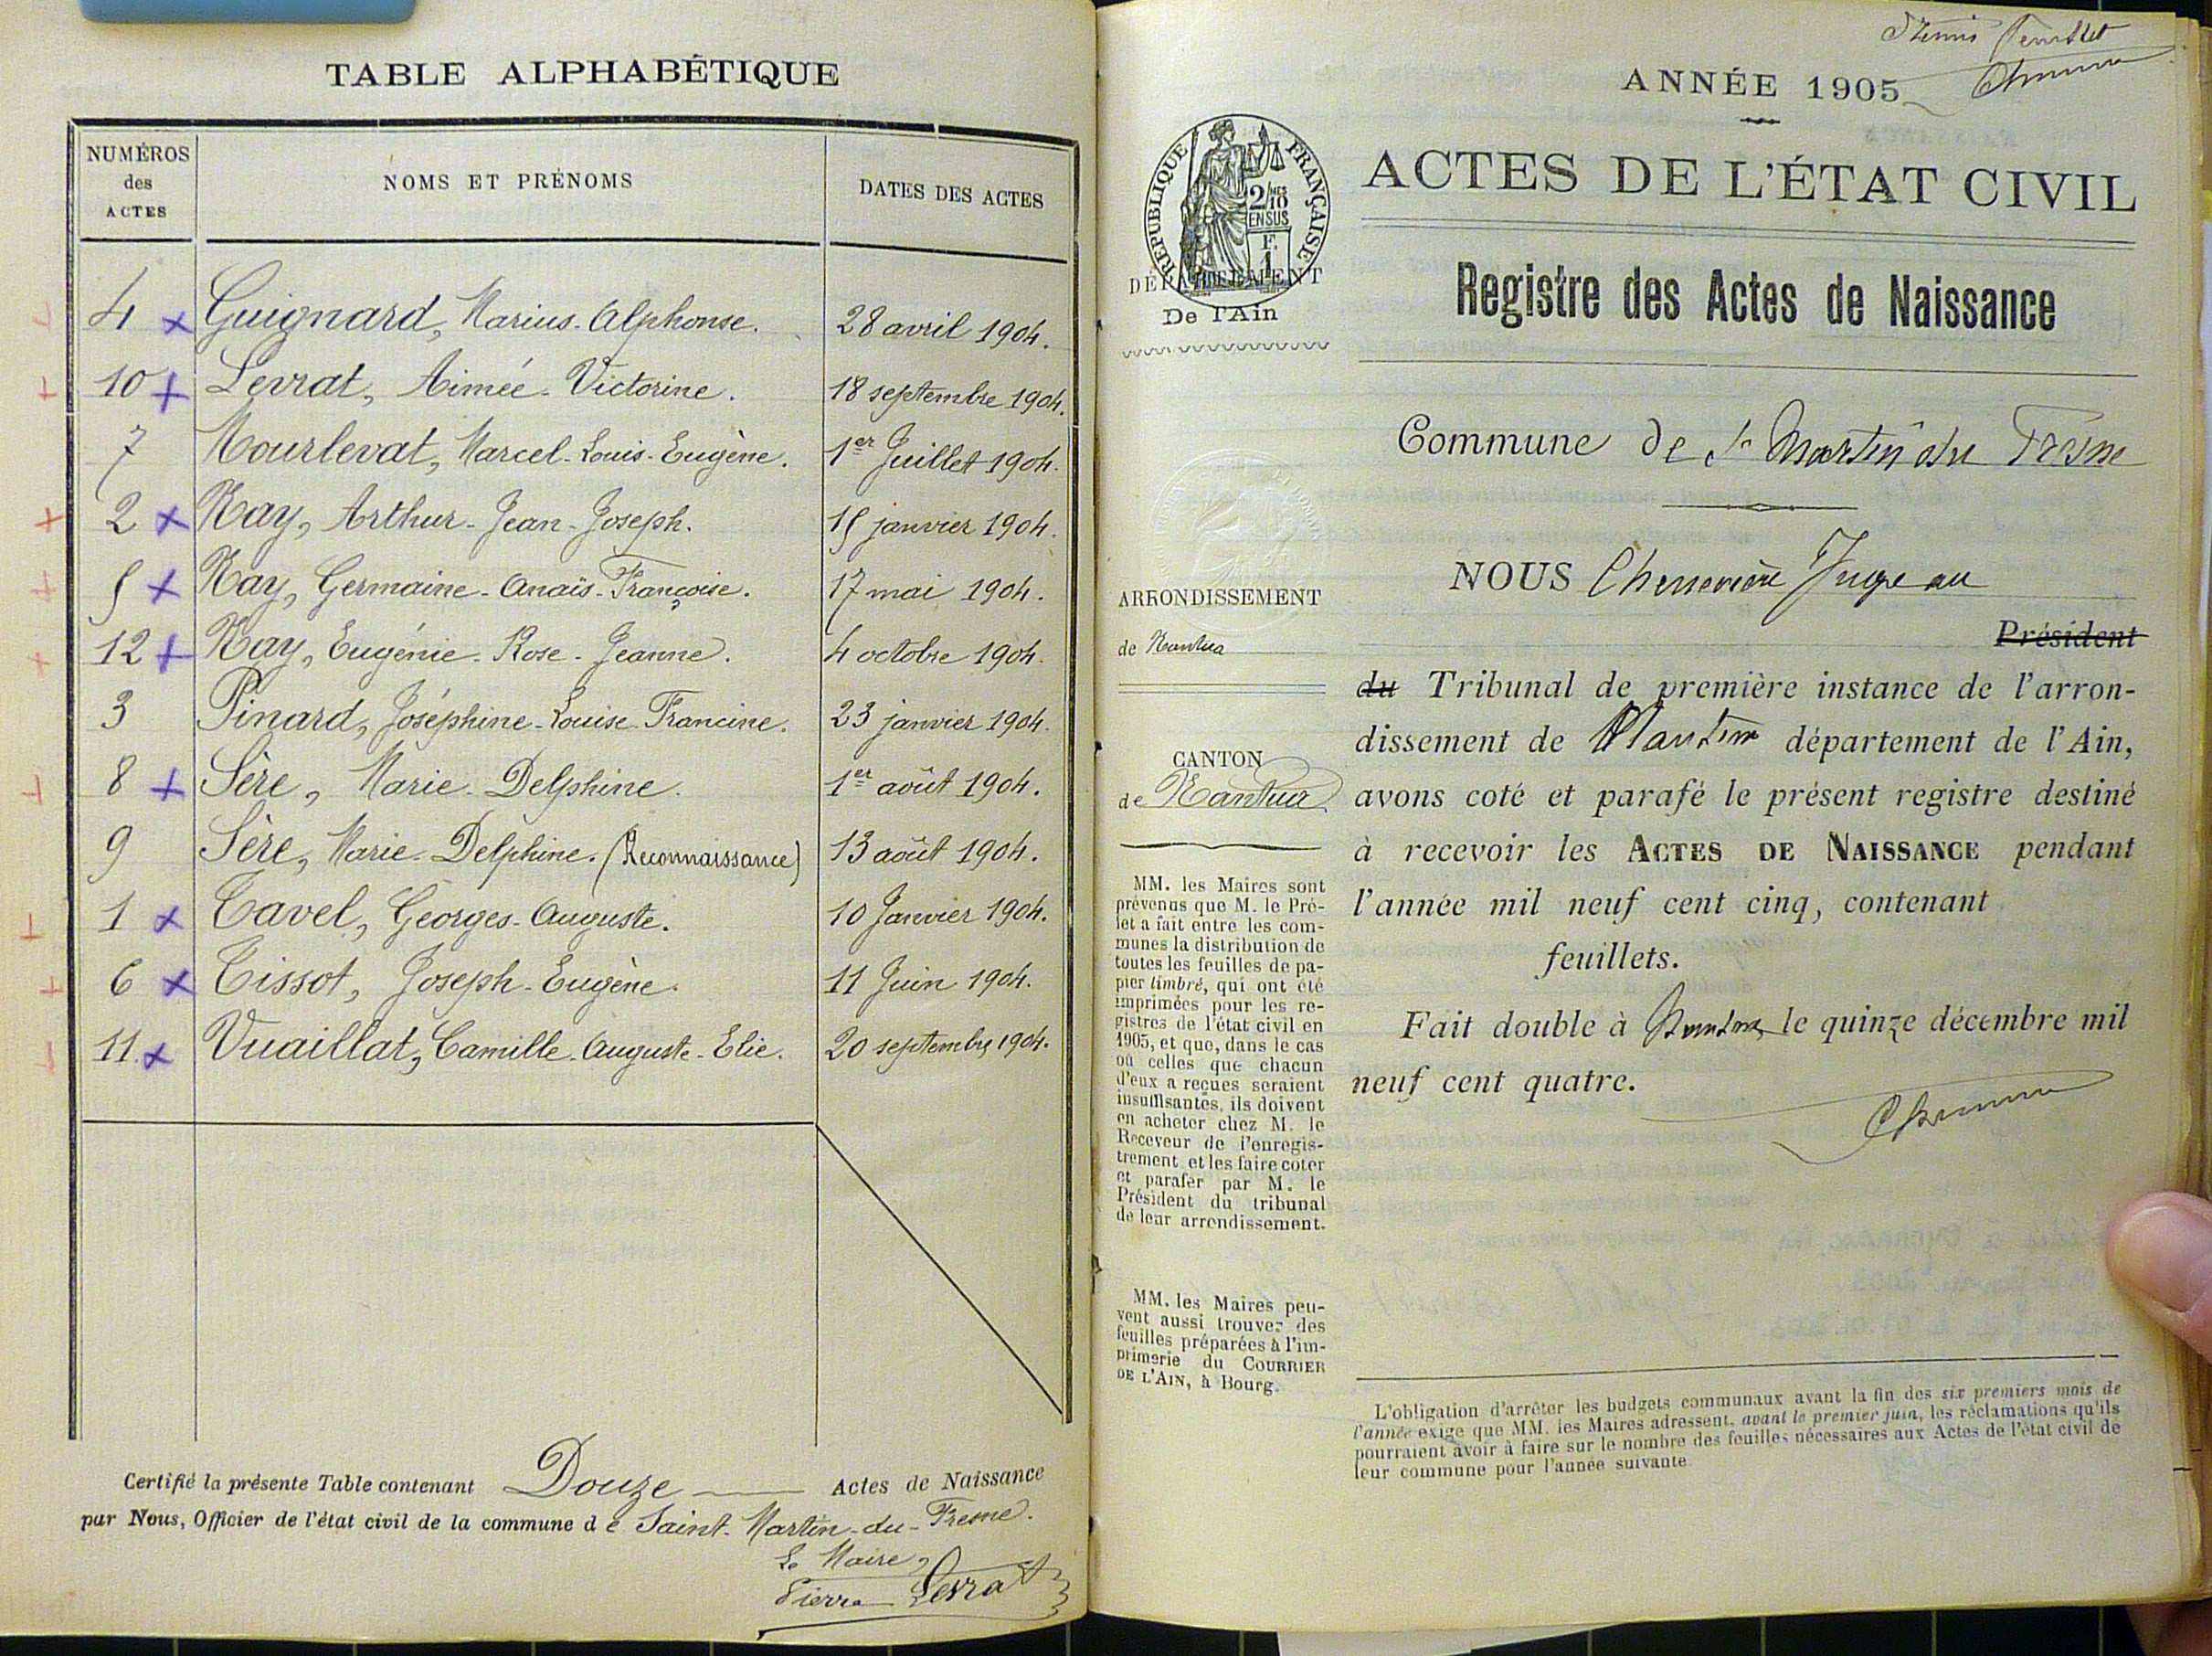 TABLE ALPHABÉTIQUE
NUMÉROS
des
ACTES
NOMS ET PRÉNOMS
DATES DES ACTES
4 x Guignard, Marius-Alphonse. 28 avril 1904.
10 + Levrat, Aimée-Victorine. 18 septembre 1904.
7 Mourlevat, Marcel-Louis-Eugène. 1er Juillet 1904.
2 x Nay, Arthur-Jean-Joseph. 15 janvier 1904.
5 x Nay, Germaine-Anaïs-Françoise. 17 mai 1904.
12 + Nay, Eugénie-Rose-Jeanne. 4 octobre 1904.
3 Pinard, Joséphine-Louise-Francine. 23 janvier 1904.
8 + Sère, Marie-Delphine. 1er août 1904.
9 Sère, Marie-Delphine. (Reconnaissance) 13 août 1904.
1 x Tavel, Georges-Auguste. 10 Janvier 1904.
6 x Tissot, Joseph-Eugène. 11 Juin 1904.
11 x Vuaillat, Camille-Auguste-Elie. 20 septembre 1904.
Certifié la présente Table contenant Douze Actes de Naissance
par Nous, Officier de l'état civil de la commune de Saint-Martin-du-Fresne.
Le Maire,
Pierre Levrat
ANNÉE 1905
RÉPUBLIQUE FRANÇAISE
2/10 MES
EN SUS
F.
1
DÉPARTEMENT
De l'Ain
ACTES DE L'ÉTAT CIVIL
Registre des Actes de Naissance
Commune de St Martin du Fresne
NOUS Chenevière Juge au
Président
du Tribunal de première instance de l'arron-
dissement de Nantua département de l'Ain,
avons coté et parafé le présent registre destiné
à recevoir les ACTES DE NAISSANCE pendant
l'année mil neuf cent cinq, contenant
feuillets.
Fait double à Nantua le quinze décembre mil
neuf cent quatre.
ARRONDISSEMENT
de Nantua
CANTON
de Nantua
MM. les Maires sont
prévenus que M. le Pré-
fet a fait entre les com-
munes la distribution de
toutes les feuilles de pa-
pier timbré, qui ont été
imprimées pour les re-
gistres de l'état civil en
1905, et que, dans le cas
où celles que chacun
d'eux a reçues seraient
insuffisantes, ils doivent
en acheter chez M. le
Receveur de l'enregis-
trement et les faire coter
et parafer par M. le
Président du tribunal
de leur arrondissement.
MM. les Maires peu-
vent aussi trouver des
feuilles préparées à l'im-
primerie du COURRIER
DE L'AIN, à Bourg.
L'obligation d'arrêter les budgets communaux avant la fin des six premiers mois de
l'année exige que MM. les Maires adressent, avant le premier juin, les réclamations qu'ils
pourraient avoir à faire sur le nombre des feuilles nécessaires aux Actes de l'état civil de
leur commune pour l'année suivante